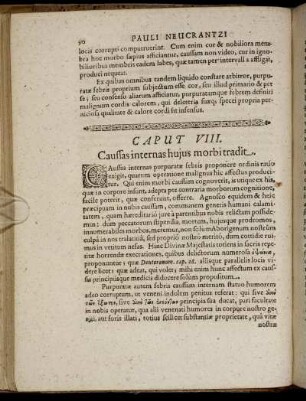 90 PAULI NEUCRANTZI
locis correpti comparuerint. Cum enim cor & nobiliora mem-
bra hoc morbo sæpius afficiantur, caussam non video, cur in igno-
bilioribus membris eadem labes, quæ tamen per intervalla affligit,
produci nequeat.
Ex quibus omnibus tandem liquido constare arbitror, purpu-
ratæ febris proprium subjectum esse cor, sive illud primario & per
se; seu consensu aliarum afficiatur: purpuratamque febrem definiri
malignum cordis calorem, qui deleteria suæq; speciei propria per-
niciosa qualitate & calore cordi sit infensus.
CAPUT VIII.
Caussas internas hujus morbi tradit.
CAussas internas purpuratæ febris proponere ordinis ratio
exigit, quarum operatione malignus hic affectus produci-
tur. Qui enim morbi caussam cognoverit, is
quæ in corpore insunt, adepta per contraria morborum cognitione,
facile poterit, quæ conferunt, offerre. Agnosco equidem & heic
præcipuam in nobis caussam, communem generis humani calami-
tatem, quam hæreditario jure à parentibus nobis relictam posside-
mus: dum peccatorum asperitas, mortem, hujusque prodromos
innumerabiles morbos, meremur, non solum Aborigenum nostrûm
culpa in nos translatitiâ, sed propriâ nostrâ & cuivis non cæcutienti
vitiorum
res nefaria. Hinc Divinæ Majestatis toties in sacris repe-
titæ horrendæ execrationes, quibus delictorum numerosa
proponuntur & Deuteronom. cap. 28. aliisque parallelis locis vi-
dere licet: quæ adeat, qui volet; mihi enim hunc affectum ex caus-
sæ principiisque medici disserere solum propositum.
Purpuratæ autem febris caussam internam statuo humorem
adeo corruptum, ut veneni indolem penitus referat: qui sive
principia sua ducat, pari facultate
in nobis operatur, quà alii venenati humores in corpore nostro ge-
niti, aut foris illati, totius scilicet substantiæ proprietate, quâ vitæ
nostræ